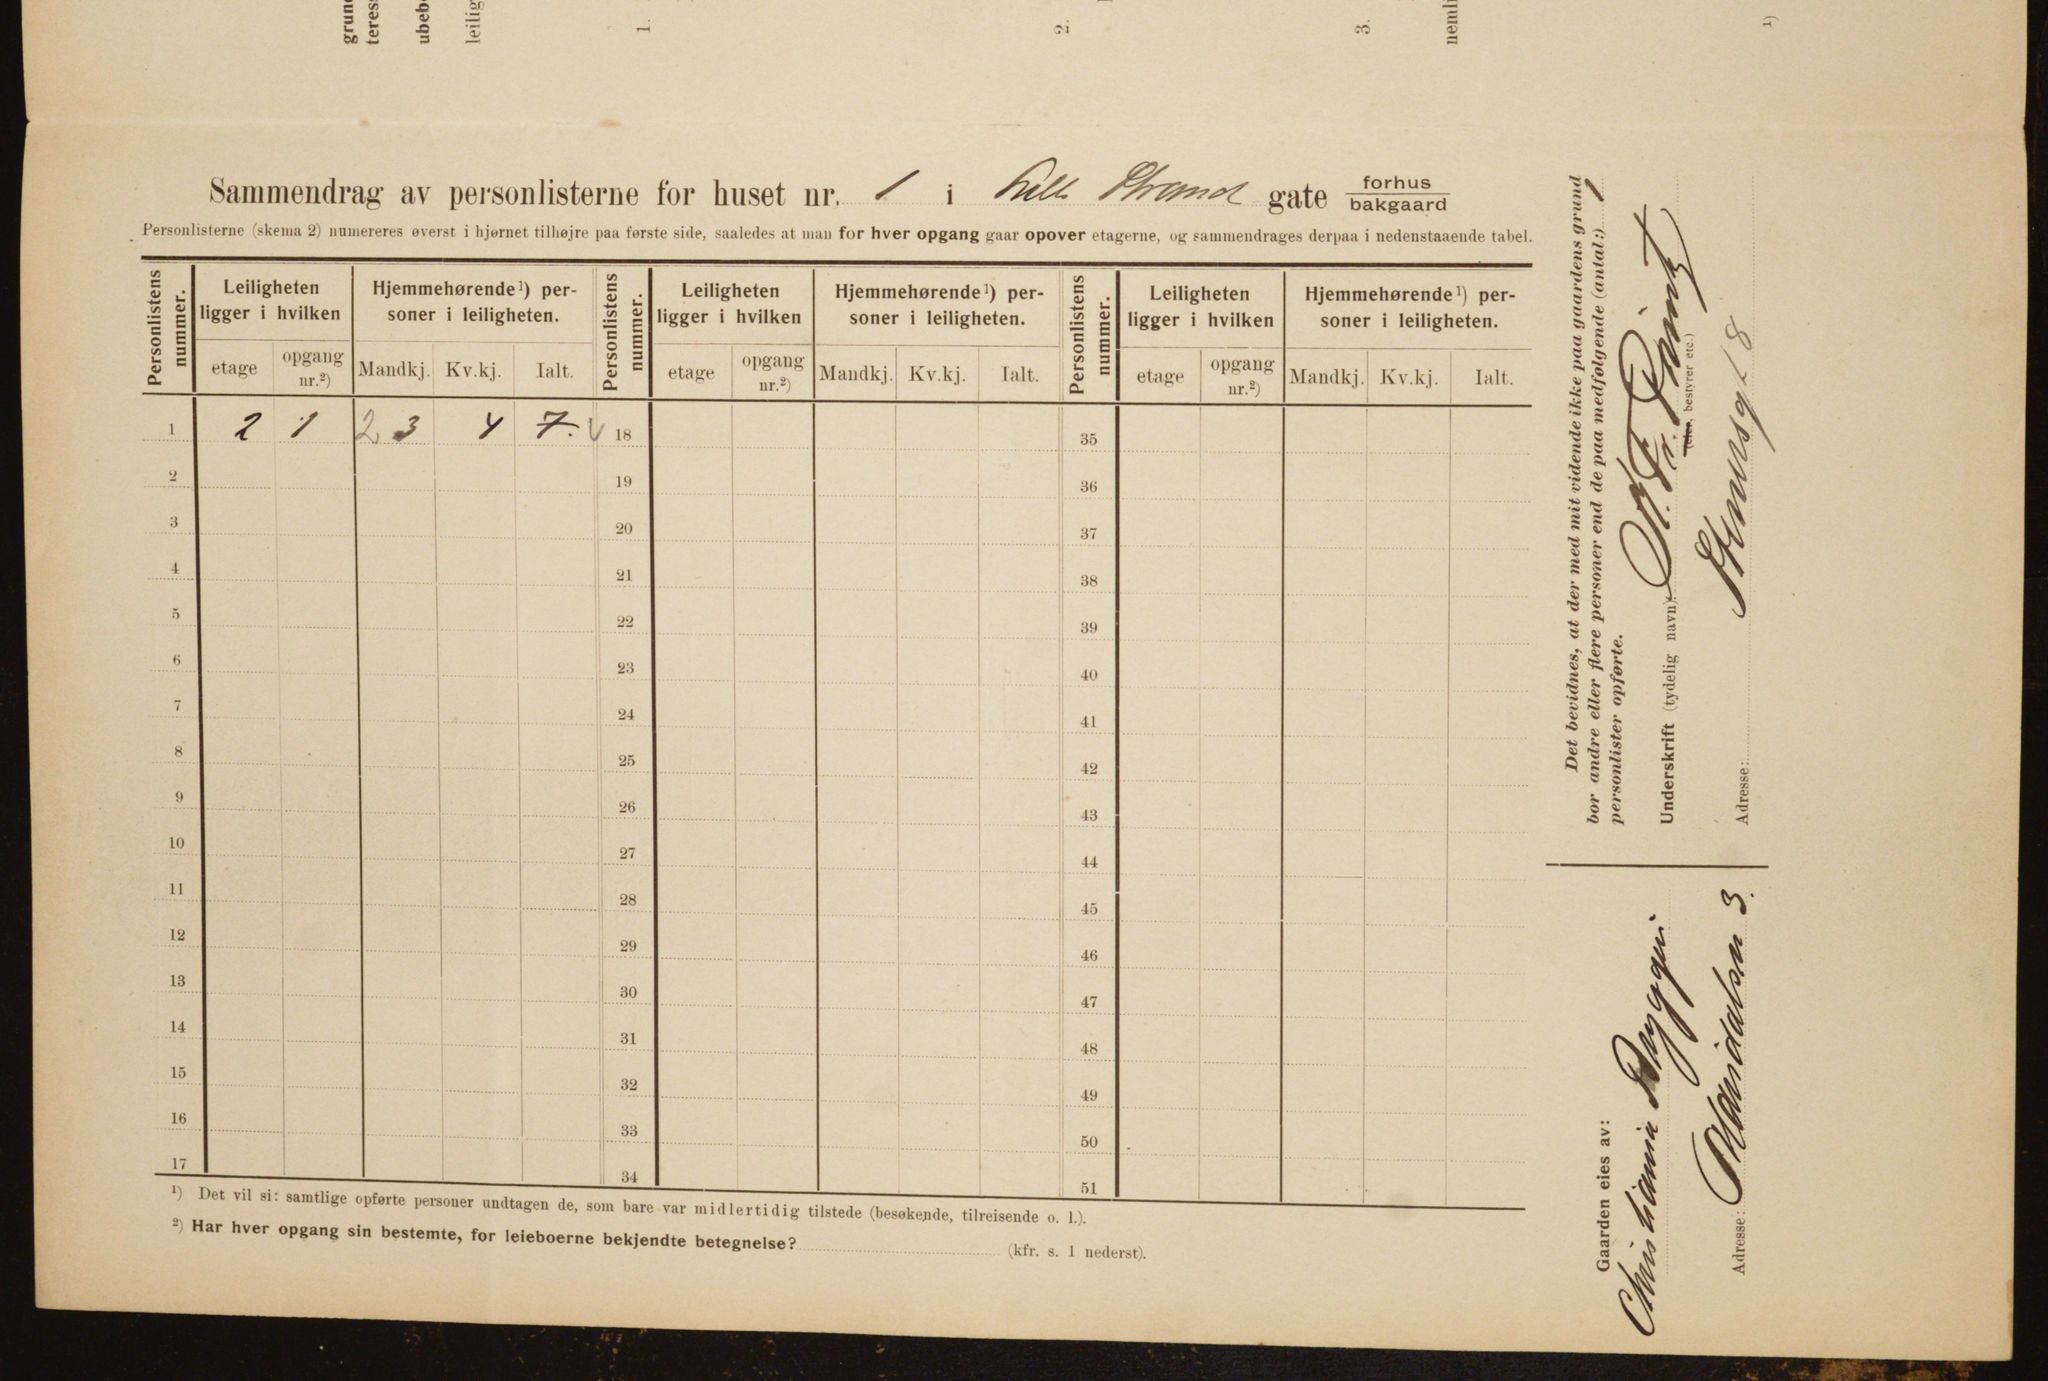 grund
teress
ubebo
leilig
1.
2.
3.
nemli
1)
Sammendrag av personlisterne for huset nr. 1 i Lille Strand gate forhus bakgaard
Personlisterne (skema 2) numereres øverst i hjørnet tilhøjre paa første side, saaledes at man for hver opgang gaar opover etagerne, og sammendrages derpaa i nedenstaaende tabel.
Personlistens nummer. Leiligheten ligger i hvilken Hjemmehørende¹) personer i leiligheten. Personlistens nummer. Leiligheten ligger i hvilken Hjemmehørende¹) personer i leiligheten. Personlistens nummer. Leiligheten ligger i hvilken Hjemmehørende¹) personer i leiligheten.
etage opgang nr.²) Mandkj. Kv.kj. Ialt. etage opgang nr.²) Mandkj. Kv.kj. Ialt. etage opgang nr.²) Mandkj. Kv.kj. Ialt.
1 2 1 2 3 4 7. 18 35
2 19 36
3 20 37
4 21 38
5 22 39
6 23 40
7 24 41
8 25 42
9 26 43
10 27 44
11 28 45
12 29 46
13 30 47
14 31 48
15 32 49
16 33 50
17 34 51
¹) Det vil si: samtlige opførte personer undtagen de, som bare var midlertidig tilstede (besøkende, tilreisende o. l.).
²) Har hver opgang sin bestemte, for leieboerne bekjendte betegnelse? (kfr. s. 1 nederst).
Det bevidnes, at der med mit vidende ikke paa gaardens grund
bor andre eller flere personer end de paa medfølgende (antal:) 1
personlister opførte.
Underskrift (tydelig navn):
(eier, bestyrer etc.)
Adresse: 8
Gaarden eies av:
Christiania Bryggeri
Adresse: Maridalsv 3.